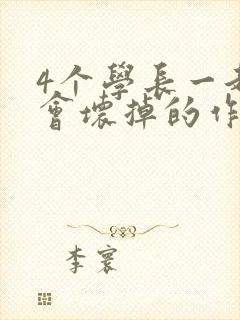 4个學長一
會壞掉的作
李寰